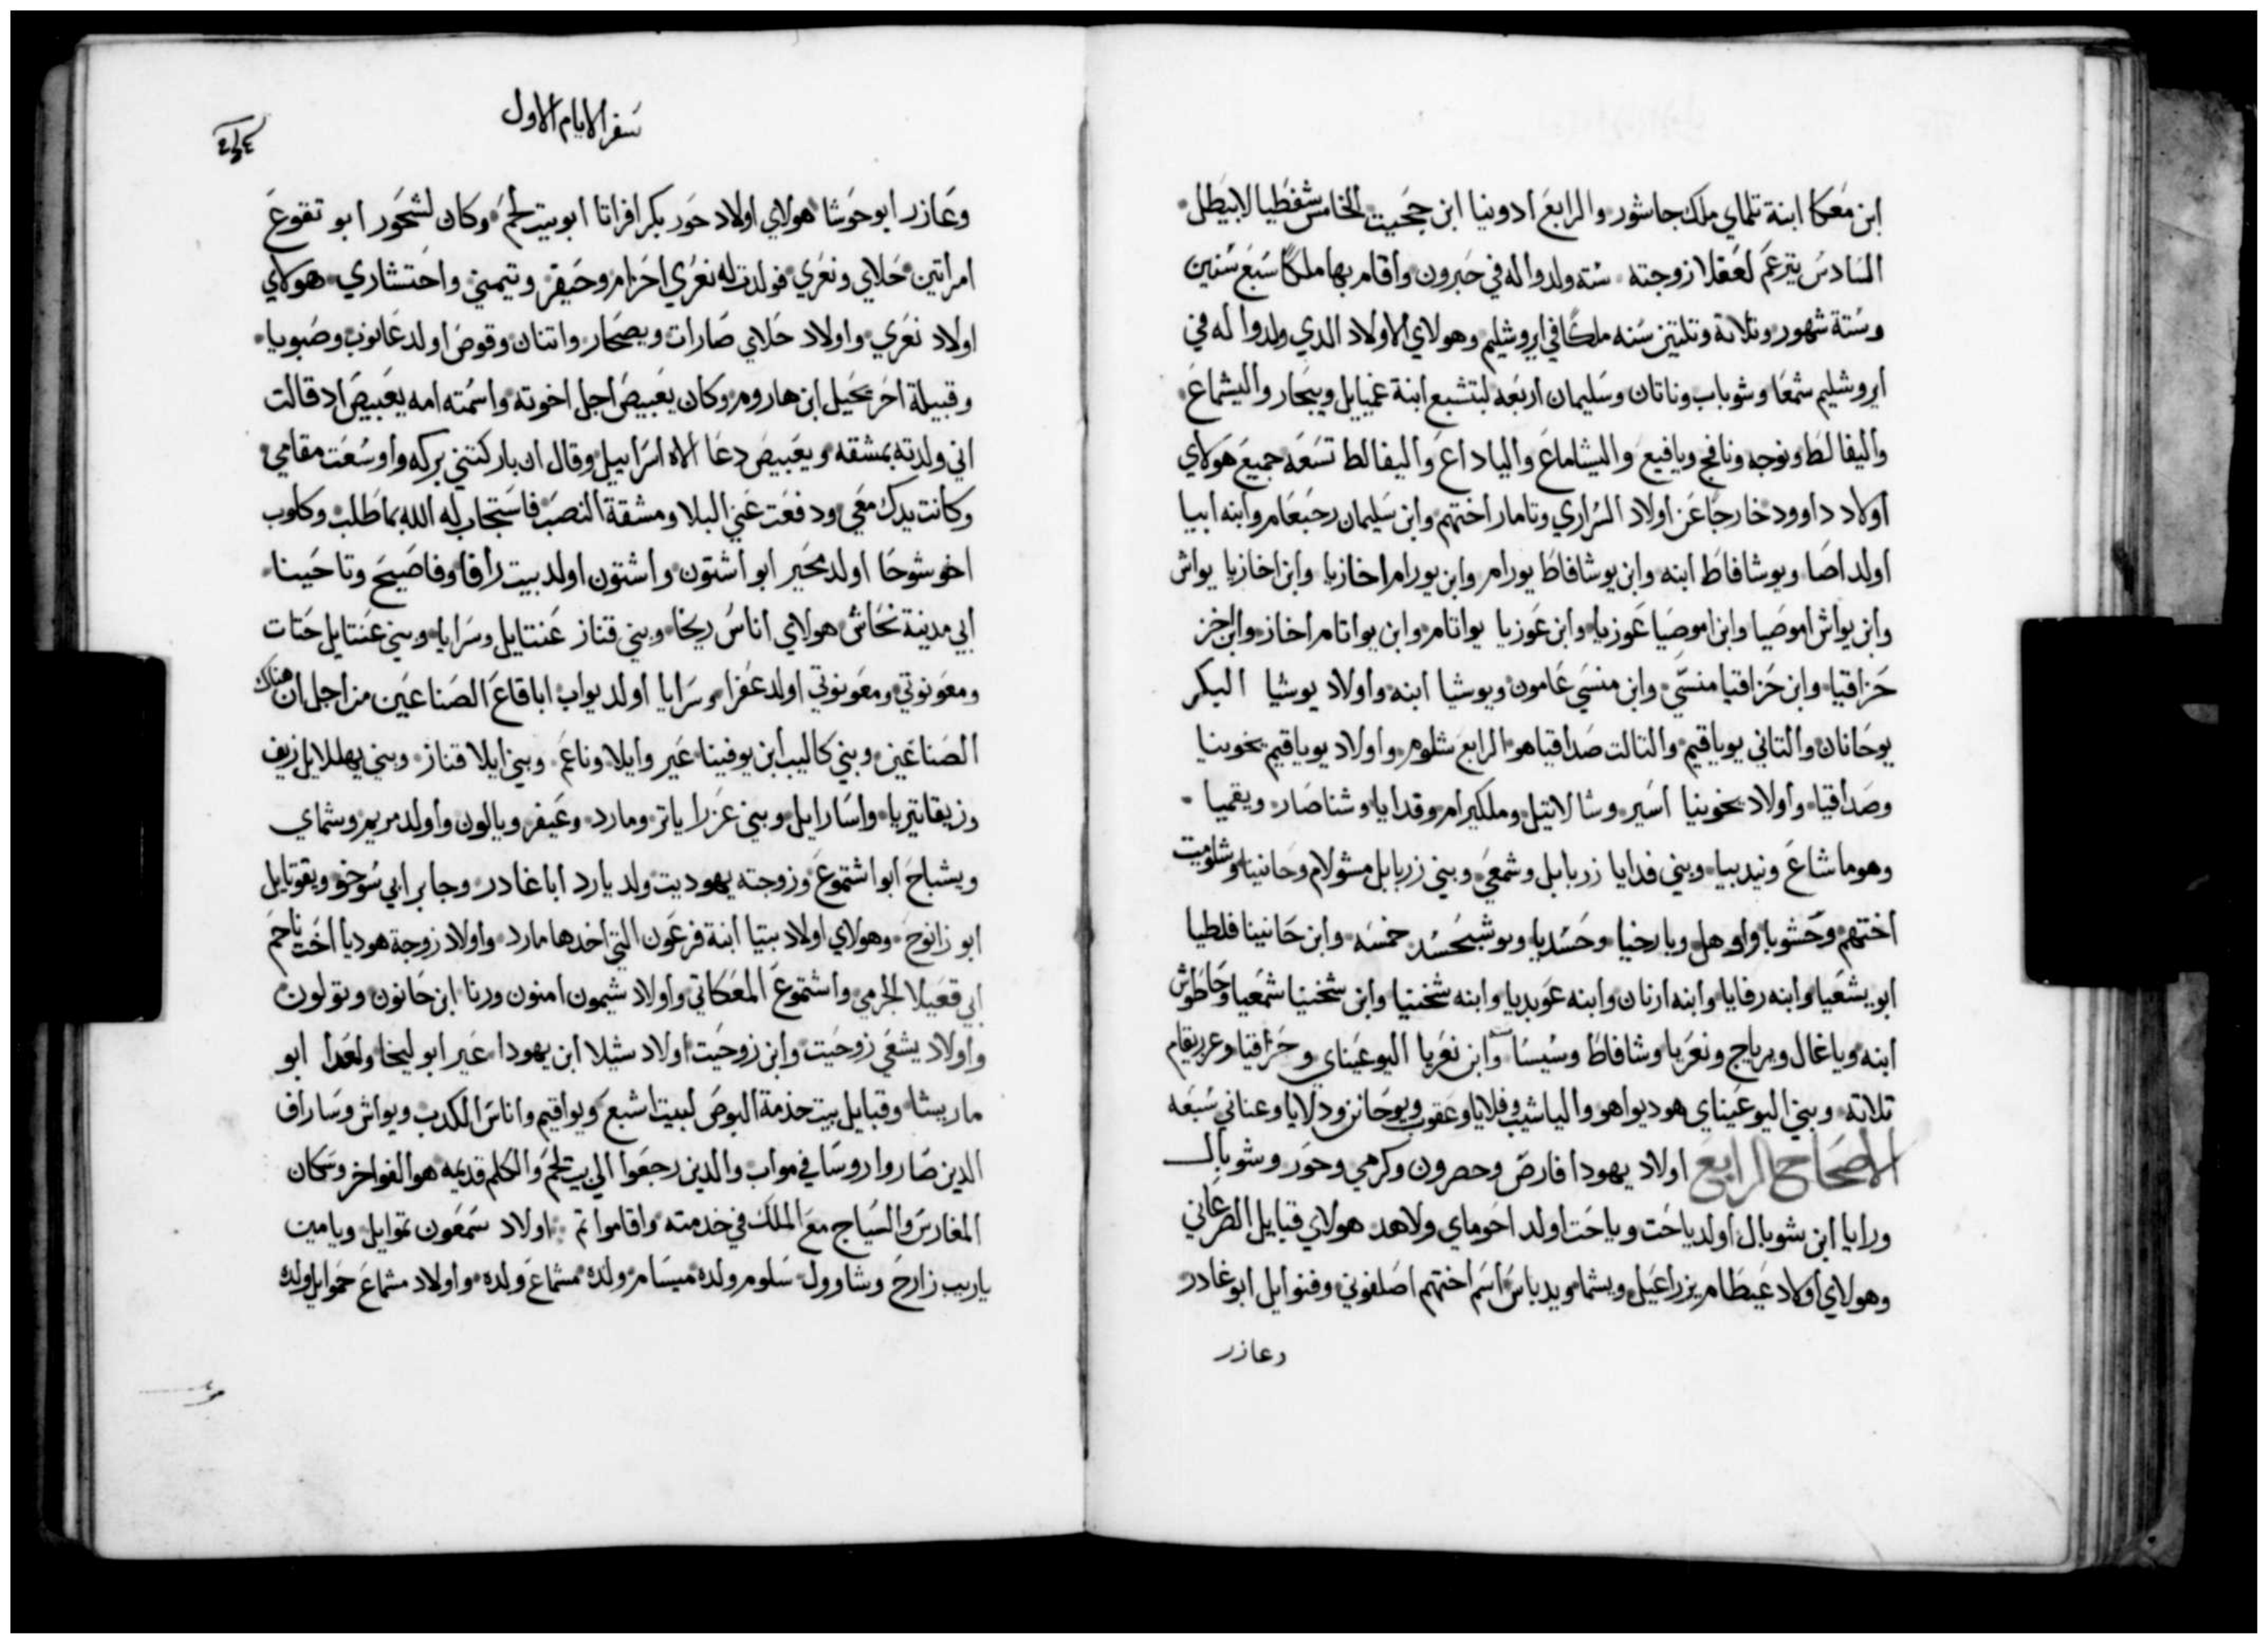 ابن معكا ابنة تلماي ملك جاشور والرابع ادونيا ابن ججيت الخامس شفطيا لابيطل
السادس يترعم لعقلا زوجته سته ولدوا له في حبرون واقام بها ملكًا سبع سنين
وستة شهور وتلاتة وتلتين سنه ملكًا في ايروشليم وهولاي الاولاد الدي ولدوا له في
ايروشليم شمعا وشوباب وناتان وسليمان اربعه لبتشبع ابنة عميايل ويبحار واليشماع
واليفالط ونوجه ونافج ويافيع واليشاماع والياداع واليفالط تسعه جميع هولاي
اولاد داوود خارجًا عن اولاد السراري وتامار اختهم وابن سليمان رحبعام وابنه ابيا
اولد اصا ويوشافاط ابنه وابن يوشافاط يورام وابن يورام اخازيا وابن اخازيا يواش
وابن يواش اموصيا وابن اموصيا عوزيا وابن عوزيا يواتام وابن يواتام اخاز وابن اخز
حزاقيا وابن حزاقيا منسّي وابن منسي عامون ويوشيا ابنه واولاد يوشيا البكر
يوحانان والتاني يوياقيم والتالت صداقيا هو الرابع شلوم واولاد يوياقيم يخونيا
وصداقيا واولاد يخونيا اسير وشالاتيل وملكيرام وقدايا وشناصار ويقميا
وهوماشاع ونيدبيا وبني فدايا زربابل وشمعي وبني زربابل مشولام وحانينا وشلوميت
اختهم وحشوبا واوهل وبارخيا وحسديا ويوشبحسد خمسه وابن حانينا فلطيا
ابو يشعيا وابنه رفايا وابنه ارنان وابنه عوبديا وابنه شخنيا وابن شخنيا شمعيا وحاطوش
ابنه وياغال وبرياح ونعريا وشافاط وسيسا وابن نعريا اليوعيناي وحزاقيا وعريقام
تلاته وبني اليوعيناي هوديواهو والياشيب وفلايا وعقوب ويوحانن ودلايا وعناني سبعه
الاصحاح الرابع اولاد يهودا فارص وحصرون وكرمي وحور وشوبال
ورايا ابن شوبال اولد ياحت وياحت اولد احوماي ولاهد هولاي قبايل الصرعاني
وهولاي اولاد عيطام يزراعيل ويشما ويدباس اسم اختهم اصلفوني وفنوايل ابو غادر
وعازر
سفر الايام الاول
وعازر ابو حوشا هولاي اولاد حور بكر افراتا ابو بيت لحم وكان لشحور ابو تقوع
امراتين حلاي ونعري فولدت له نعري احزام وحيفر وتيمني واحتشاري هولاي
اولاد نعري واولاد حلاي صارات ويصحار واتنان وقوص اولد عانوب وصبوبا
وقبيلة احرحيل ابن هاروم وكان يعبيص اجل اخوته واسمته امه يعبيص اد قالت
اني ولدته بمشقه ويعبيص دعا الاه اسراييل وقال ان باركتني بركه واوسعت مقامي
وكانت يدك معي ودفعت عني البلا ومشقة النصب فاستجاب له الله بما طلب وكلوب
اخو شوحا اولد محير ابو اشتون واشتون اولد بيت رافا وفاصيح وتاحينا
ابي مدينة نحاش هولاي اناس ريخا وبني قناز عنتايل وسرايا وبني عنتايل حتات
ومعونوتي ومعونوتي اولد عفرا وسرايا اولد يواب ابا قاع الصناعين من اجل ان هناك
الصناعين وبني كاليب ابن يوفينا عير وايلا وناعم وبني ايلا قناز وبني يهللايل زيف
وزيفا تيريا واسارايل وبني عزرا ياتر ومارد وعيفر ويالون واولد مريم وشماي
ويشباح ابو اشتموع وزوجته يهوديت ولد يارد ابا غادر وجابر ابي سوخو ويقوتايل
ابو زانوح وهولاي اولاد بتيا ابنة فرعون التي اخدها مارد واولاد زوجة هوديا اخت ناحم
ابي قعيلا الجرمي واشتموع المعكاتي واولاد شيمون امنون ورنا ابن حانون وتولون
واولاد يشعي زوحيت وابن زوحيت اولاد شيلا ابن يهودا عير ابو ليخا ولعدا ابو
ماريشا وقبايل بيت خدمة البوص لبيت اشبع ويواقيم واناس الكدب ويواش وساراف
الدين صاروا روسا في مواب والدين رجعوا الي بيت لحم والكلم قديمه هو الفواخر وسكان
المغارس والسياج مع الملك في خدمته واقاموا تم اولاد سمعون نموايل ويامين
ياريب زارح وشاوول سلوم ولده ميسام ولده مشماع ولده واولاد مشماع حموايل ولده